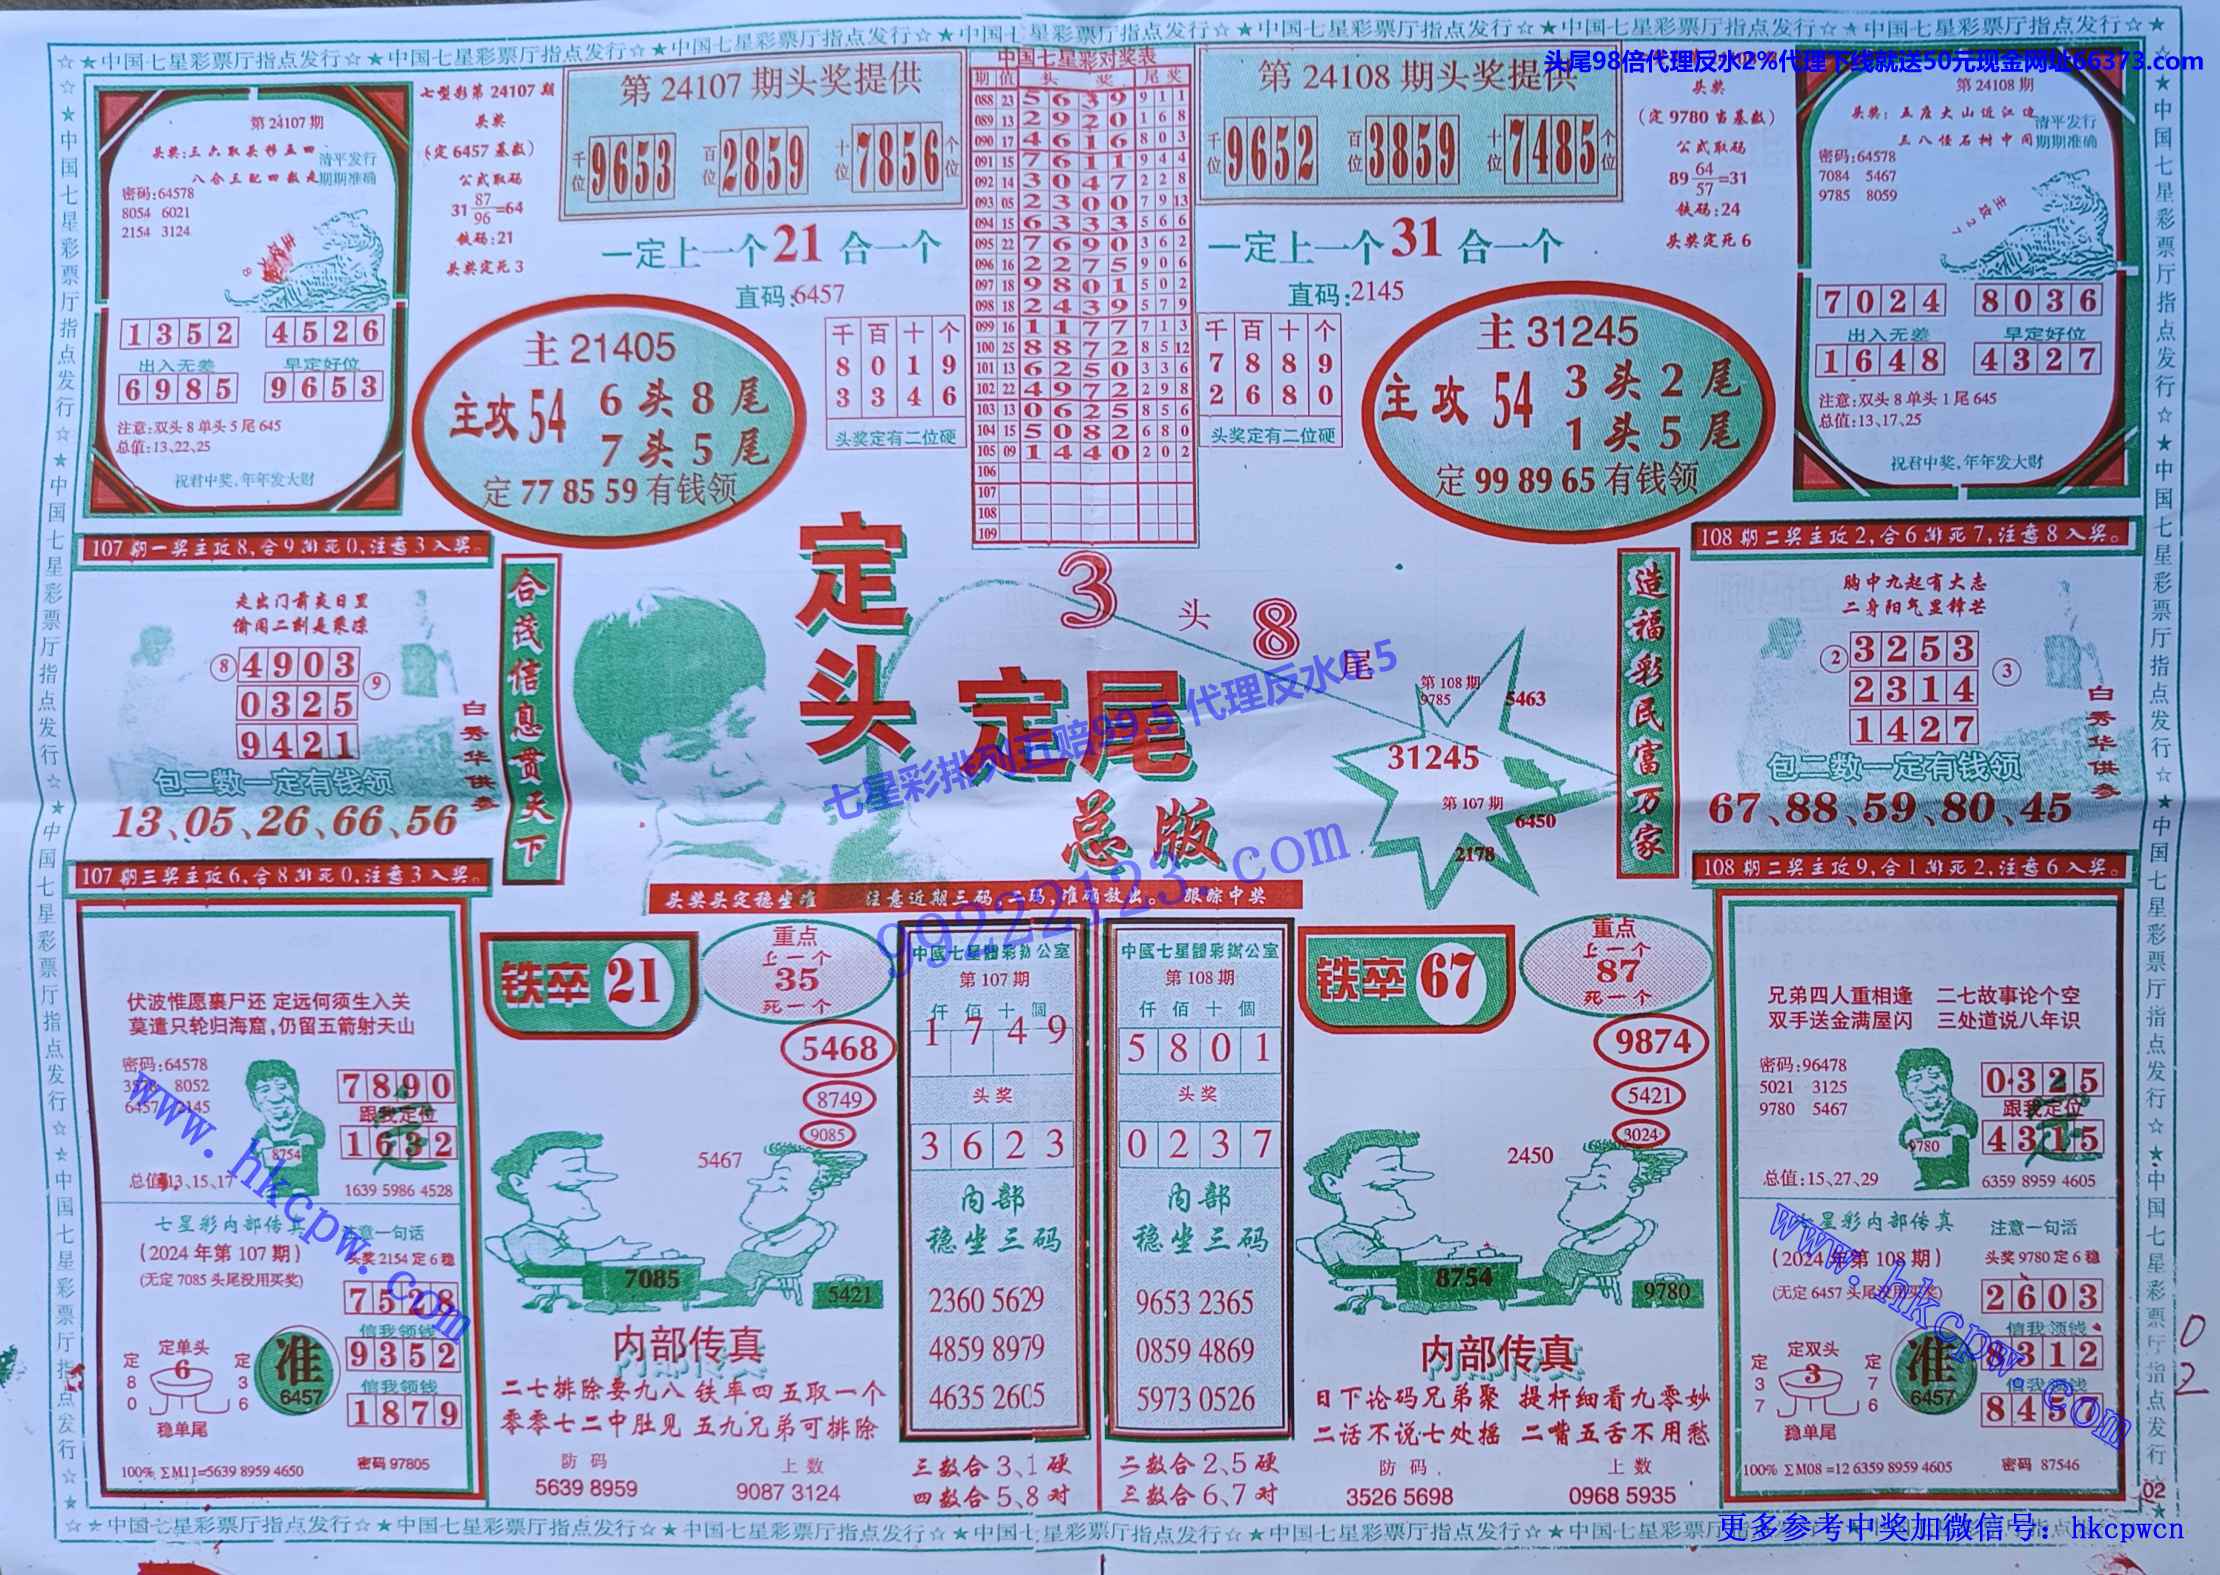 ☆★中国七星彩票厅指点发行☆★中国七星彩票厅指点发行☆★中国七星彩票厅指点发行☆★中国七星彩票厅指点发行☆★中国七星彩票厅指点发行☆★中国七星彩票厅指点发行☆★中国七星彩票厅指点发行☆★
头尾98倍代理反水2%代理下线就送50元现金网址66373.com
第24107期
头奖:三六取头移五四
清平发行
八合三配四数走
期期准确
密码:64578
8054 6021
2154 3124
1352 4526
出入无差 早定好位
6985 9653
注意:双头8单头5尾645
总值:13,22,25
祝君中奖,年年发大财
七星彩第24107期
头奖
(定6457基数)
公式取码
31 87/96=64
铁码:21
头奖定死3
第24107期头奖提供
千位 9653 百位 2859 十位 7856 个位
一定上一个21合一个
直码:6457
主21405
主攻54 6头8尾
7头5尾
定77 85 59有钱领
千百十个
8019
3346
头奖定有二位硬
中国七星彩对奖表
期 值 头奖 尾奖
088 23 5639 9 1 1
089 13 2920 1 6 8
090 17 4616 8 0 3
091 15 7611 9 4 4
092 14 3047 2 2 8
093 05 2300 7 9 13
094 15 6333 5 6 6
095 22 7690 3 6 2
096 16 2275 9 0 6
097 18 9801 5 0 2
098 18 2439 5 7 9
099 16 1177 7 1 3
100 25 8872 8 5 12
101 13 6250 3 3 6
102 22 4972 2 9 8
103 13 0625 8 5 6
104 15 5082 6 8 0
105 09 1440 2 0 2
106
107
108
109
第24108期头奖提供
千位 9652 百位 3859 十位 7485 个位
一定上一个31合一个
直码:2145
千百十个
7889
2680
头奖定有二位硬
主31245
主攻54 3头2尾
1头5尾
定99 89 65有钱领
头奖
(定9780当基数)
公式取码
89 64/57=31
铁码:24
头奖定死6
第24108期
头奖:五座大山近江边
清平发行
三八怪石树中间
期期准确
密码:64578
7084 5467
9785 8059
主攻27
7024 8036
出入无差 早定好位
1648 4327
注意:双头8单头1尾645
总值:13,17,25
祝君中奖,年年发大财
107期一奖主攻8,合9排死0,注意3入奖。
走出门前炎日里
偷闲二刻是乘凉
⑧ 4903
0325 ⑨
9421
白秀华供参
包二数一定有钱领
13、05、26、66、56
107期三奖主攻6,合8排死0,注意3入奖。
合茂信息贯天下
定头定尾
总版
3头8尾
第108期
9785
5463
31245
第107期
6450
2178
七星彩排列五赔99.5 代理反水0.5
99222123.com
头奖头定稳坐准 注意近期三码二码,准确放出。 跟踪中奖
造福彩民富万家
108期二奖主攻2,合6排死7,注意8入奖。
胸中九起有大志
二身阳气显锋芒
② 3253
2314 ③
1427
白秀华供参
包二数一定有钱领
67、88、59、80、45
108期二奖主攻9,合1排死2,注意6入奖。
伏波惟愿裹尸还 定远何须生入关
莫遣只轮归海窟,仍留五箭射天山
密码:64578
8052
6457 2145
8754
7890
跟我定位
1632
总值:13、15、17
1639 5986 4528
七星彩内部传真
注意一句话
(2024年第107期)
头奖2154定6稳
(无定7085头尾没用买奖)
7528
信我领钱
9352
信我领钱
1879
定单头
6
定80
定36
稳单尾
准
6457
100% ΣM11=5639 8959 4650
密码 97805
www.hkcpw.com
铁卒21
重点
上一个
35
死一个
5468
8749
9085
5467
7085
5421
内部传真
二七排除要九八 铁率四五取一个
零零七二中肚见 五九兄弟可排除
防码 上数
5639 8959 9087 3124
中國七星體彩辦公室
第107期
仟佰十個
1749
头奖
3623
内部
稳坐三码
2360 5629
4859 8979
4635 2605
三数合3、1硬
四数合5、8对
中國七星體彩辦公室
第108期
仟佰十個
5801
头奖
0237
内部
稳坐三码
9653 2365
0859 4869
5973 0526
二数合2、5硬
三数合6、7对
铁卒67
重点
上一个
87
死一个
9874
5421
3024
2450
8754
9780
内部传真
日下论码兄弟聚 提杆细看九零妙
二话不说七处摇 二嘴五舌不用愁
防码 上数
3526 5698 0968 5935
兄弟四人重相逢 二七故事论个空
双手送金满屋闪 三处道说八年识
密码:96478
5021 3125
9780 5467
9780
0325
跟我定位
4315
总值:15、27、29
6359 8959 4605
七星彩内部传真
注意一句话
(2024年第108期)
头奖9780定6稳
(无定6457头尾没用买奖)
2603
信我领钱
8312
信我领钱
8457
定双头
3
定37
定76
稳单尾
准
6457
100% ΣM08=12 6359 8959 4605
密码 87546
www.hkcpw.com
02
02
更多参考中奖加微信号：hkcpwcn